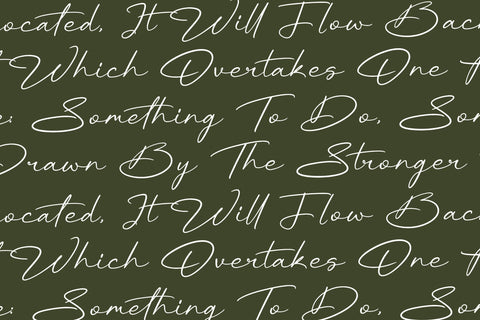 ocated, It Will Flow Bac
Which Overtakes One
e: Something To Do, Som
Drawn By The Stronger
ocated, It Will Flow Bac
Which Overtakes One
e: Something To Do, Som